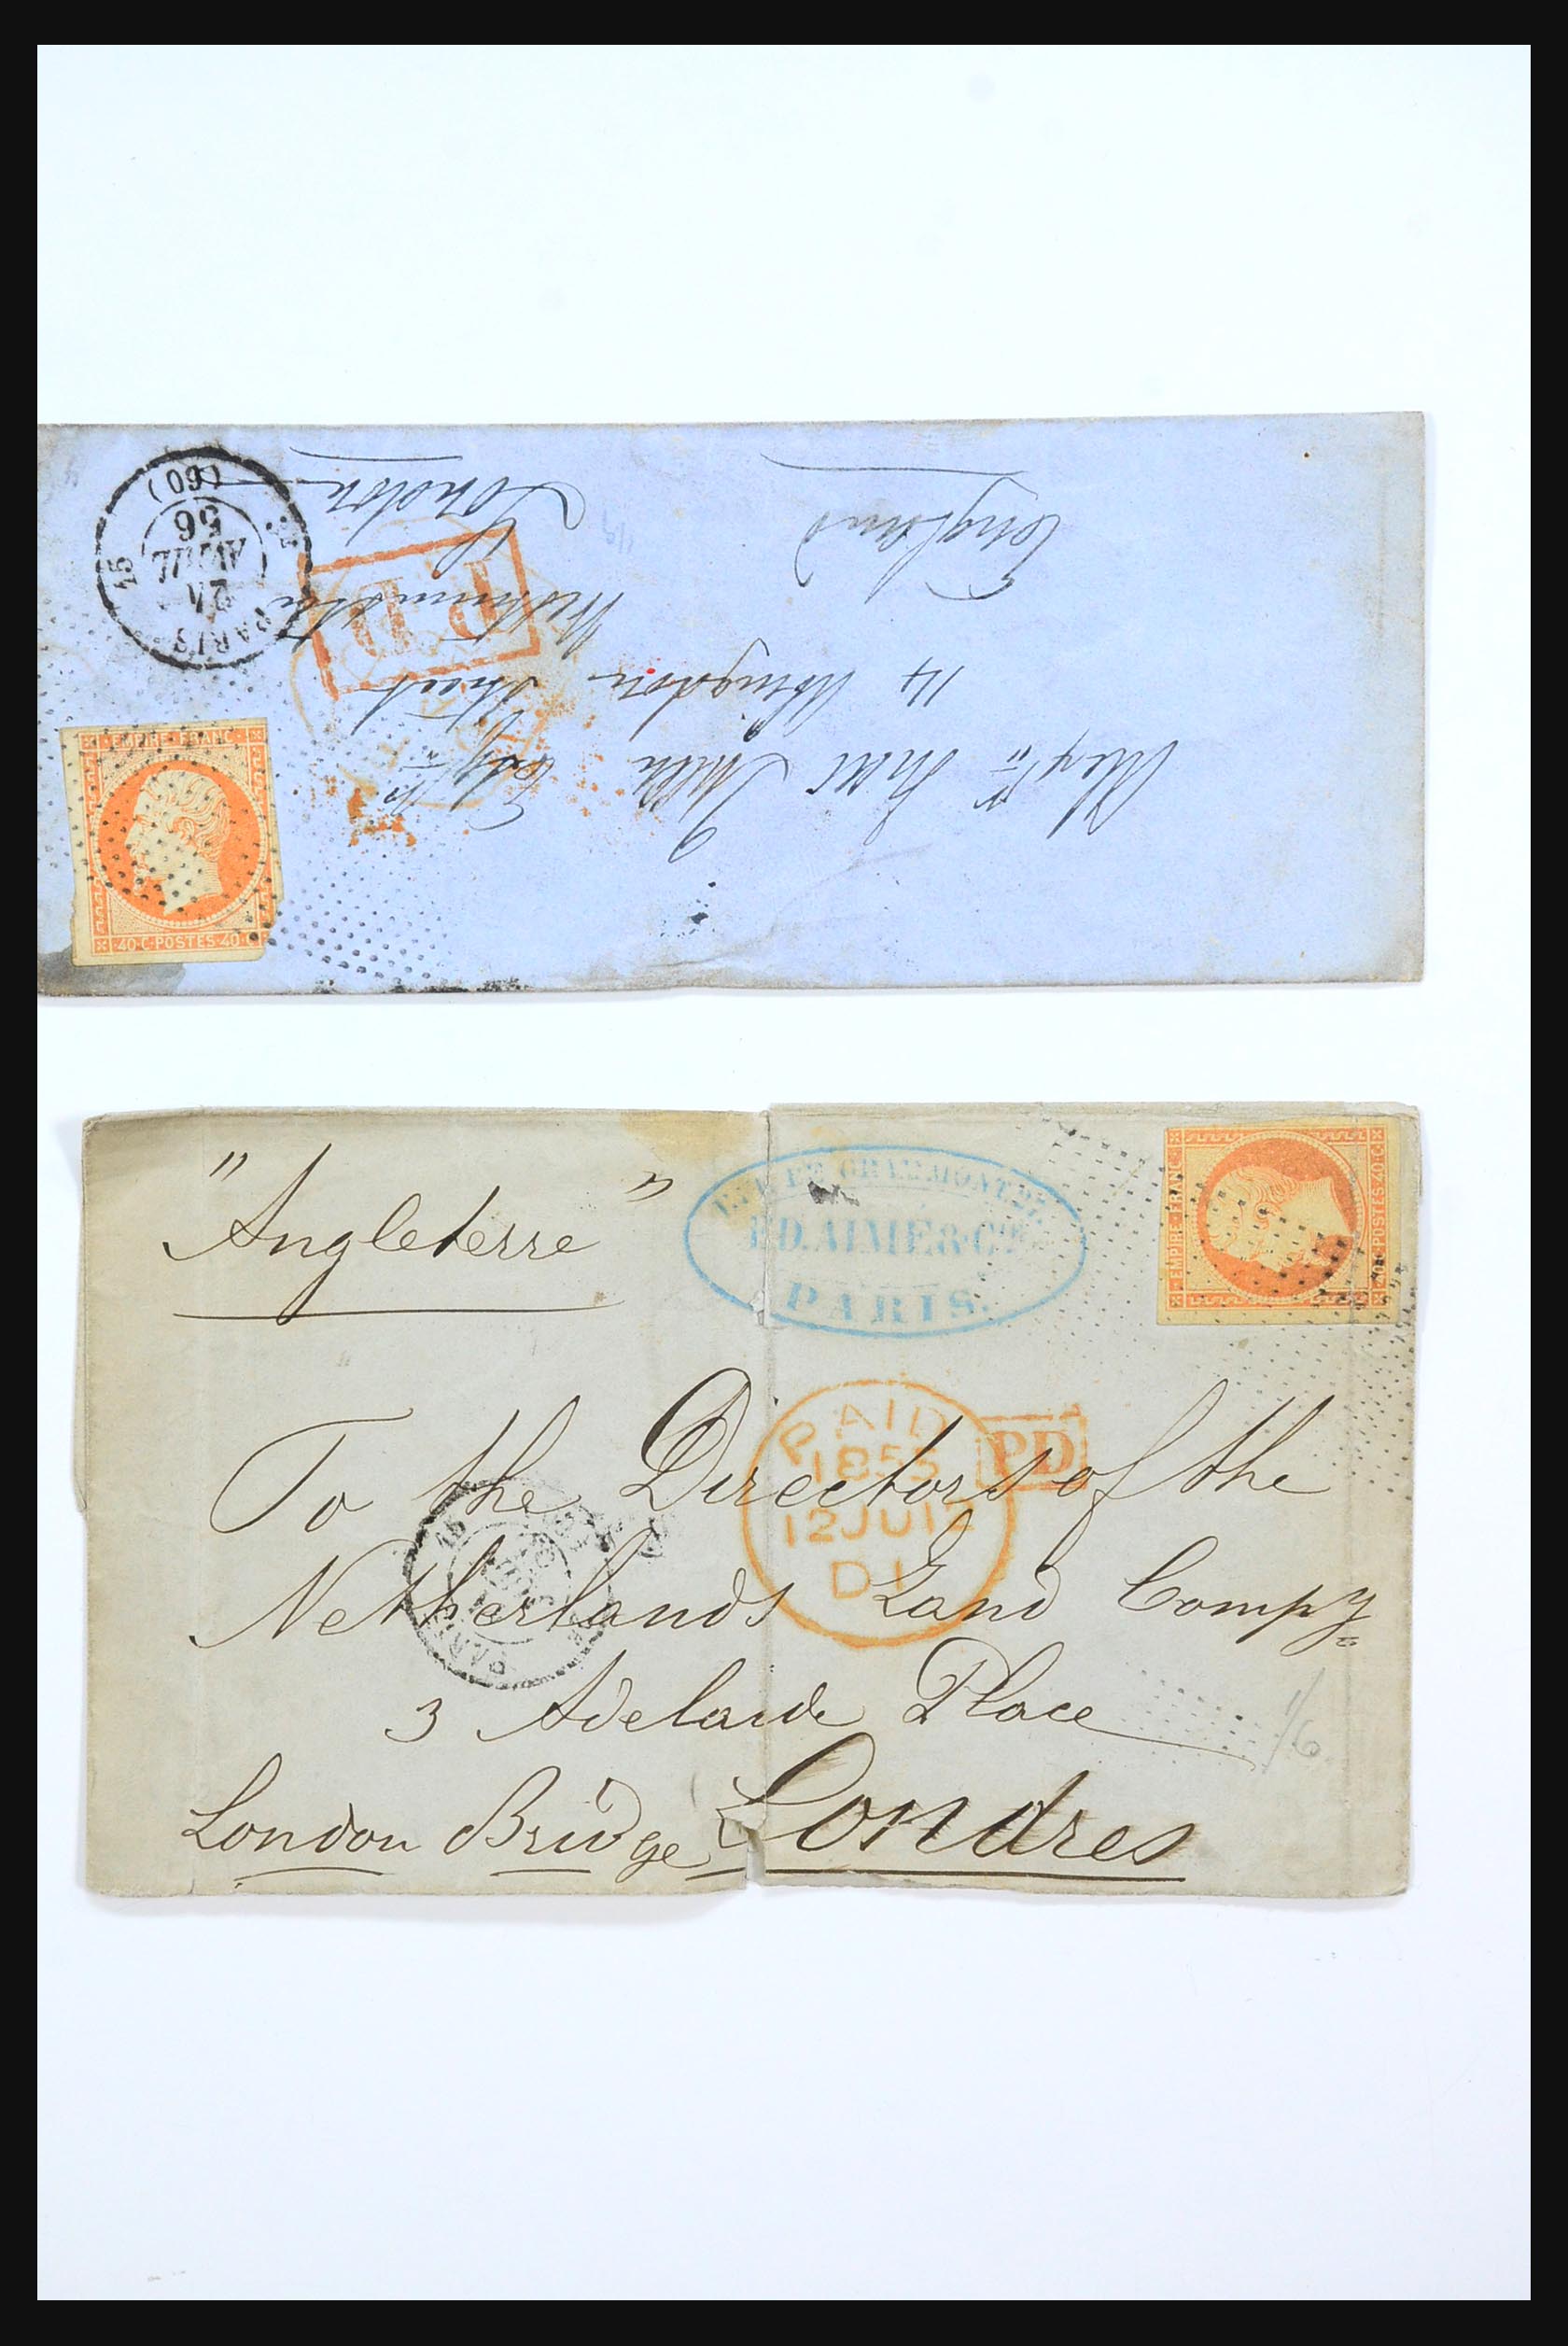 London
England
Westminster
14 Abingdon Street
Esqre
PARIS
24
AVRIL
56
(60)
15
P.D.
EMPIRE · FRANC ·
· 40 · C · POSTES · 40 · C ·
"Angleterre"
ED. AIMÉ & Cie
PARIS.
EMPIRE · FRANC ·
40 · C · POSTES · 40 · C ·
PAID
1855
12 JU 12
D I
PD
To the Directors of the
Netherlands Land Compy
3 Adelaide Place
London Bridge Londres
1/6